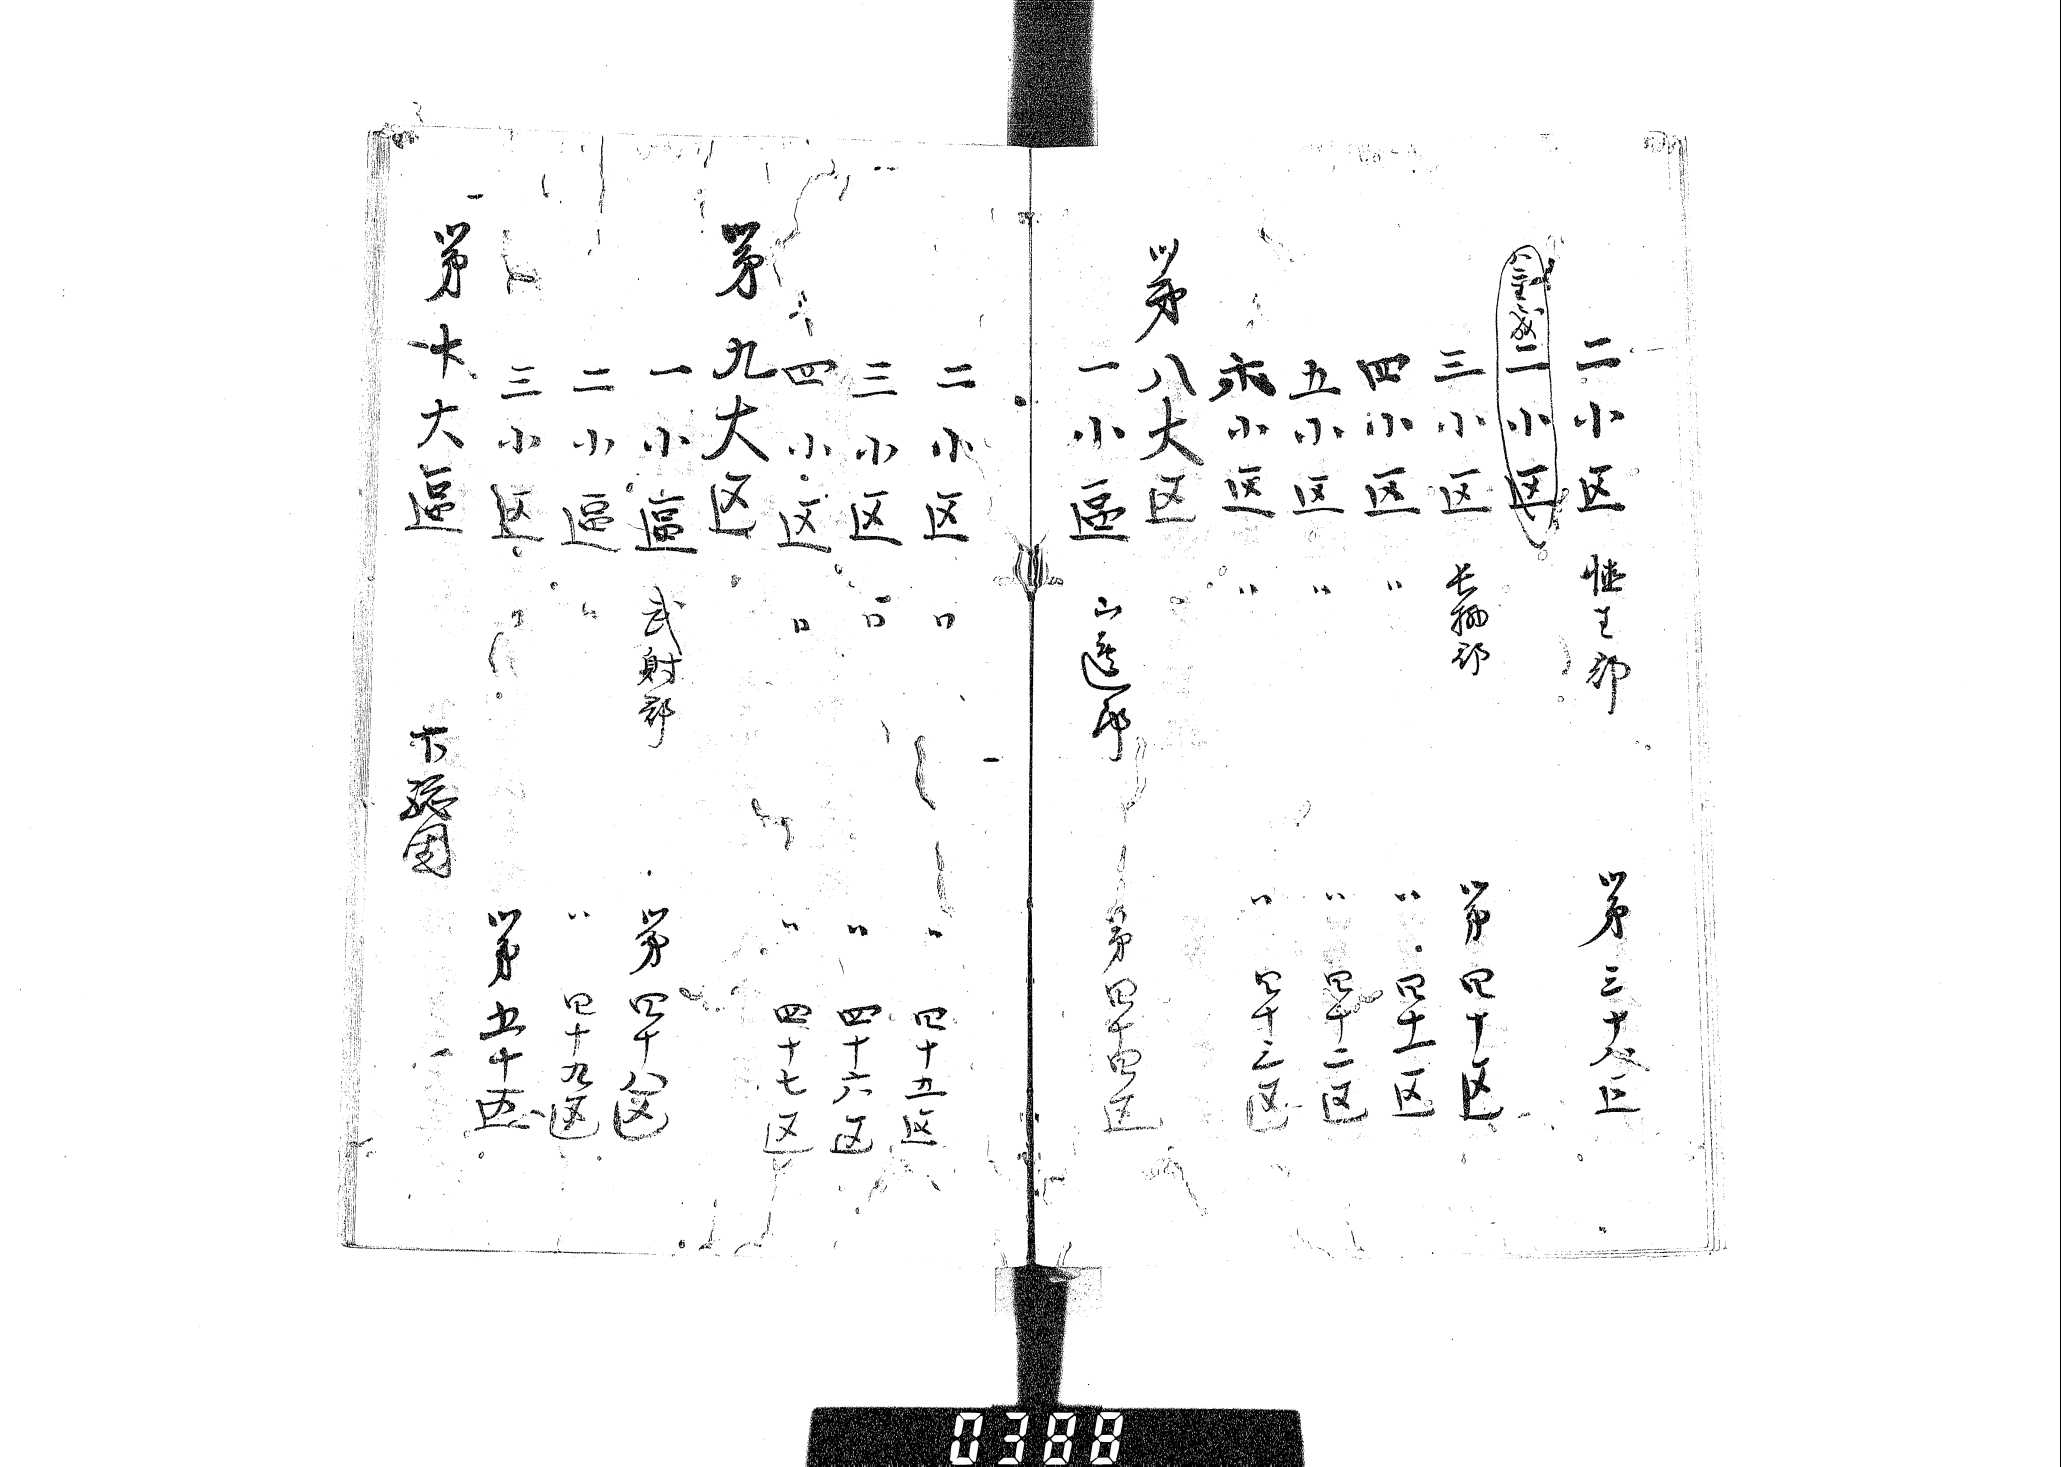 二小区 埴生郡 第三十八区
二小区
三小区 長柄郡 第四十区
四小区 〃 〃 四十一区
五小区 〃 〃 四十二区
六小区 〃 〃 四十三区
第八大区
一小區 山邊郡 第四十四区
二小区 〃 〃 四十五区
三小区 〃 〃 四十六区
四小区 〃 〃 四十七区
第九大区
一小區 武射郡 第四十八区
二小區 〃 〃 四十九区
三小区 〃 第五十区
第十大區 下総国
0388